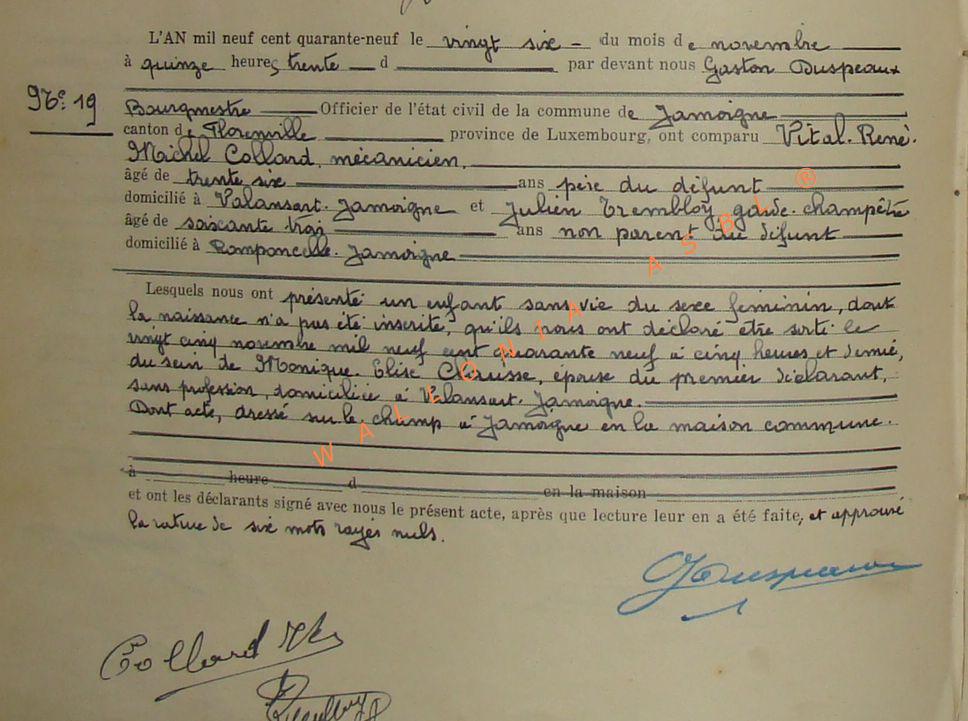 L'AN mil neuf cent quarante-neuf le vingt six - du mois de novembre
à quinze heures trente d par devant nous Gaston Duspeaux
N° 19
Bourgmestre Officier de l'état civil de la commune de Jamoigne
canton de Florenville province de Luxembourg, ont comparu Vital. René.
Michel Collard, mécanicien,
âgé de trente six ans père du défunt
domicilié à Valansart. Jamoigne et Julien Trembloy, garde-champêtre
âgé de soixante trois ans non parent du défunt
domicilié à Romponcelle. Jamoigne
Lesquels nous ont présenté un enfant sans vie du sexe feminin, dont
la naissance n'a pas été inscrite, qu'ils nous ont déclaré être sorti le
vingt cinq novembre mil neuf cent quarante neuf à cinq heures et demie,
du sein de Monique. Elise Clausse, épouse du premier déclarant,
sans profession, domiciliée à Valansart. Jamoigne.
Dont acte, dressé sur le champ à Jamoigne en la maison commune.
à heure d en la maison
et ont les déclarants signé avec nous le présent acte, après que lecture leur en a été faite, et approuvé
la rature de six mots rayés nuls.
GDuspeaux
Collard
WALFONIA ASBL ®